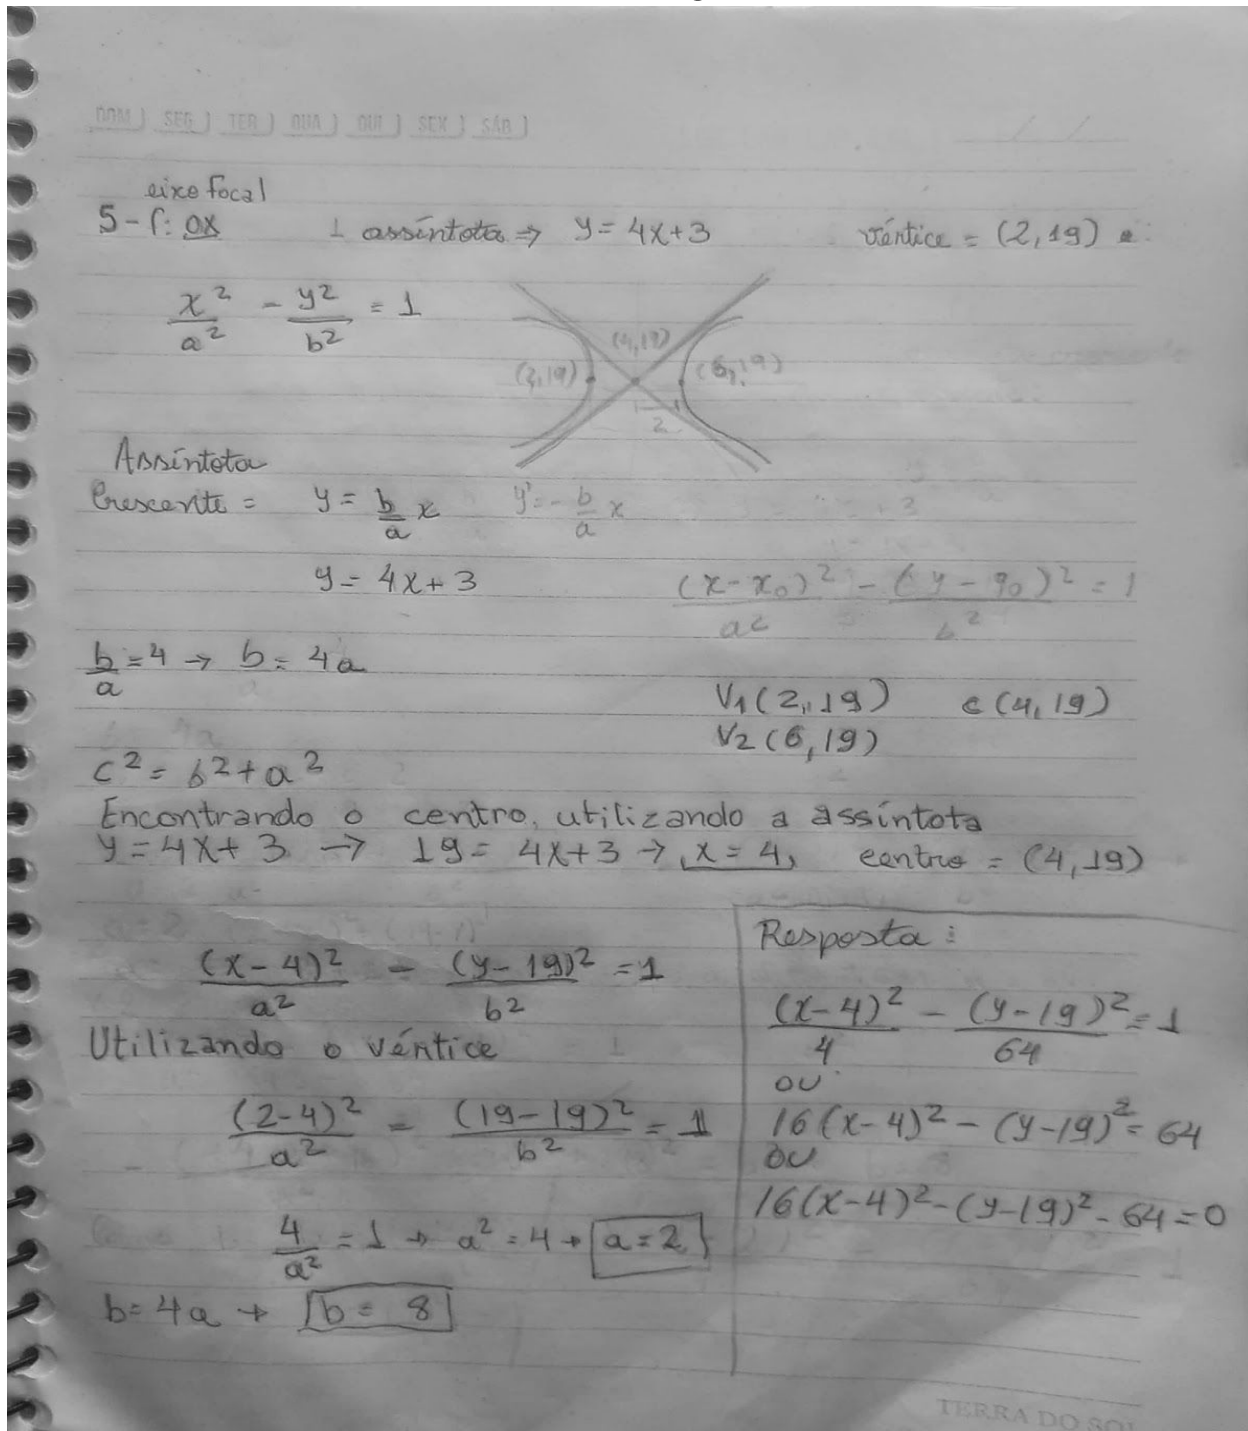 DOM SEG TER QUA QUI SEX SÁB
eixo focal
5 - f: OX ⊥ assíntota ⇒ y = 4x+3 vértice = (2,19)
x²/a² - y²/b² = 1
(4,19)
(2,19) (6,19)
2
Assíntota
Crescente = y = b/a x y' = - b/a x
y = 4x + 3 (x-x₀)²/a² - (y-y₀)²/b² = 1
b/a = 4 → b = 4a
V1(2,19) c(4,19)
V2(6,19)
c² = b² + a²
Encontrando o centro, utilizando a assíntota
y = 4x + 3 → 19 = 4x+3 → x = 4, centro = (4,19)
(x-4)²/a² - (y-19)²/b² = 1
Utilizando o vértice
(2-4)²/a² - (19-19)²/b² = 1
4/a² = 1 → a² = 4 → a = 2
b = 4a → b = 8
Resposta:
(x-4)²/4 - (y-19)²/64 = 1
ou
16(x-4)² - (y-19)² = 64
ou
16(x-4)² - (y-19)² - 64 = 0
TERRA DO SOL